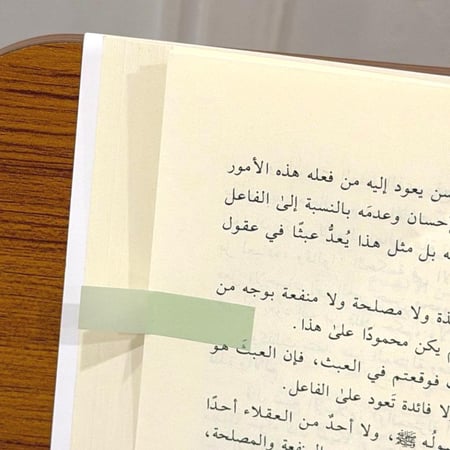 يعود إليه من فعله هذه الأمور
وعدمَه بالنسبة إلىٰ الفاعل
بل مثل هذا يُعدُّ عبثًا في عقول
ولا مصلحة ولا منفعة بوجه من
يكن محمودًا علىٰ هذا.
فوقعتم في العبث، فإن العبثَ هو
لا فائدة تَعود علىٰ الفاعل.
ﷺ، ولا أحدٌ من العقلاء أحدًا
والمصلحة،